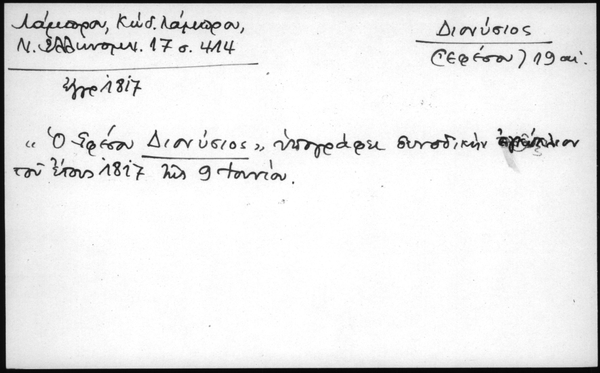 Λάμπρου, Κώδ. Λάμπρου,
Ν. Ἑλληνομν. 17 σ. 414
Διονύσιος
(Ἐφέσου) 19 αἰ.
ἔγγρ 1817
"Ὁ Ἐφέσου Διονύσιος" ὑπογράφει συνοδικὴν
τοῦ ἔτους 1817 τῆς 9 Ἰουνίου.